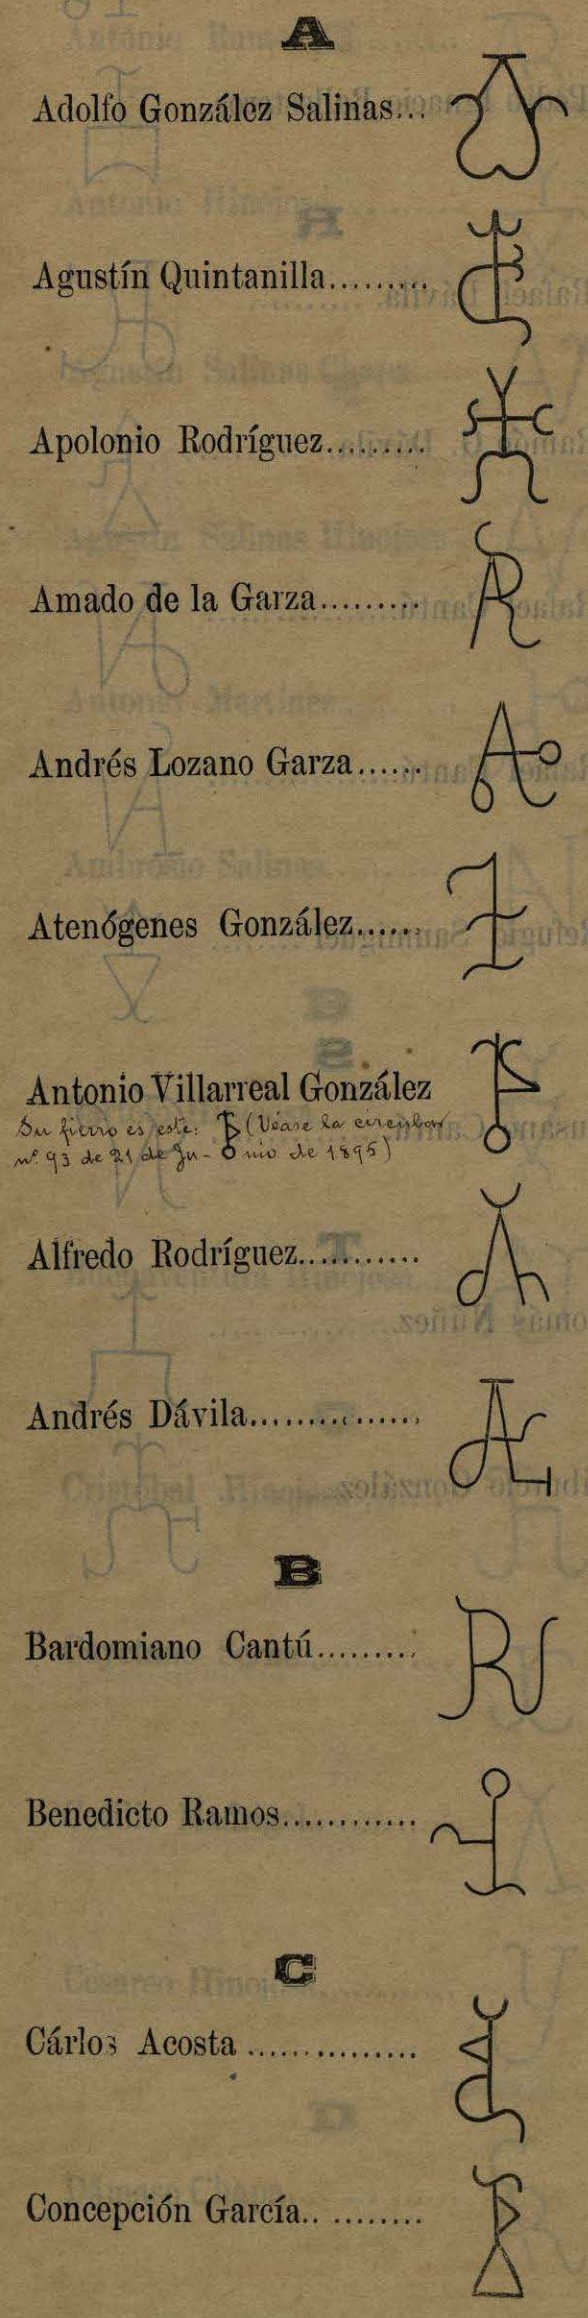 A
Adolfo González Salinas...
Agustín Quintanilla.........
Apolonio Rodríguez.........
Amado de la Garza.........
Andrés Lozano Garza......
Atenógenes González......
Antonio Villarreal González
Su fierro es este: (Véase la circular
nº 93 de 21 de Ju- nio de 1895)
Alfredo Rodríguez...........
Andrés Dávila...............
B
Bardomiano Cantú.........
Benedicto Ramos............
C
Cárlos Acosta ...............
Concepción García.. ........